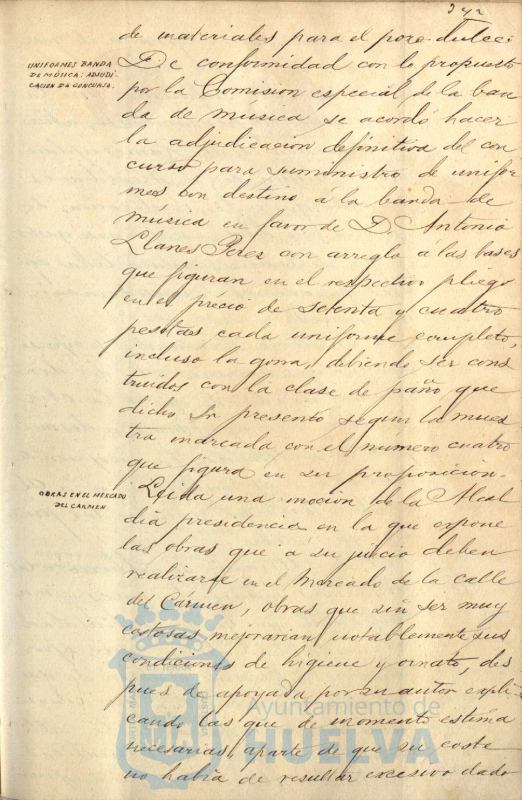 de materiales para el pozo dulce.
UNIFORMES BANDA
DE MÚSICA: ADJUDI
CACION DA CONCURSO.
De conformidad con lo propuesto
por la Comision especial de la ban
da de música se acordó hacer
la adjudicacion definitiva del con
curso para suministro de unifor
mes con destino á la banda de
música en favor de D. Antonio
Llanes Perez con arreglo a las bases
que figuran en el respectivo pliego
en el precio de setenta y cuatro
pesetas cada uniforme completo,
incluso la gorra, debiendo ser cons
truidos con la clase de paño que
dicho Sr presentó segun la mues
tra marcada con el numero cuatro
que figura en su proposicion.
OBRAS EN EL MERCADO
DEL CARMEN
Leida una mocion de la Alcal
dia presidencia en la que expone
las obras que á su juicio deben
realizarse en el Mercado de la calle
del Cármen, obras que sin ser muy
costosas mejorarian notablemente sus
condiciones de higiene y ornato, des
pues de apoyada por su autor expli
cando las que de momento estima
necesarias, aparte de que su coste
no habia de resultar excesivo dado
Ayuntamiento de
HUELVA